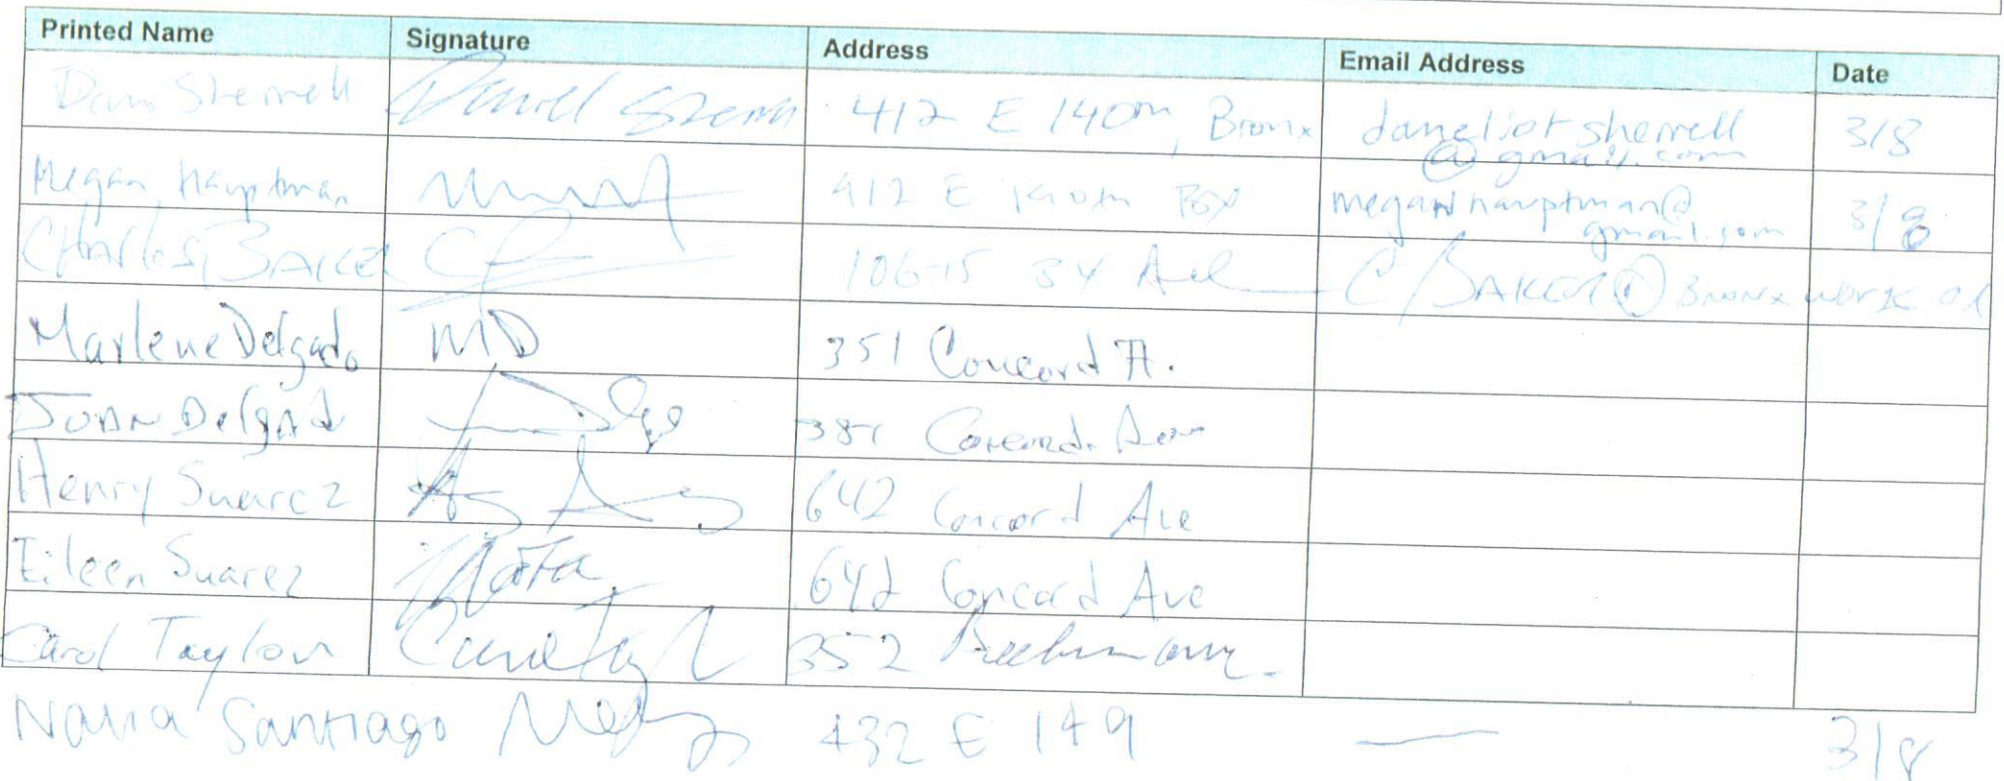 Printed Name Signature Address Email Address Date
Dan Sherrell Daniel Sherrell 412 E 140th, Bronx daneliotsherrell@gmail.com 3/8
Megan Hauptman 412 E 140th BX meganhauptman@gmail.com 3/8
Charles BAKER 106-15 34 Ave CBAKER@Bronxworks.or
Marlene Delgado MD 351 Concord A.
JUAN Delgad 351 Concord. Ave
Henry Suarez 642 Concord Ave
Eileen Suarez 642 Concord Ave
Carol Taylor Carol Tayl 352 Beekman ave.
Santiago 432 E 149 — 3/8